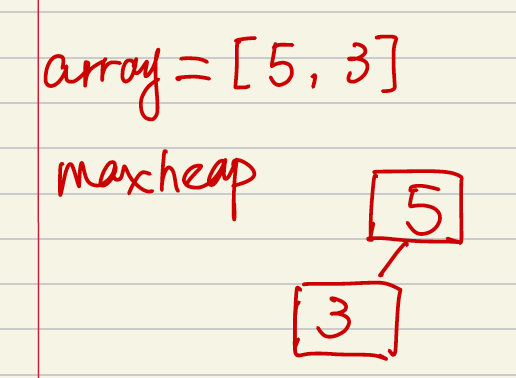 array = [5, 3]
maxheap
5
3